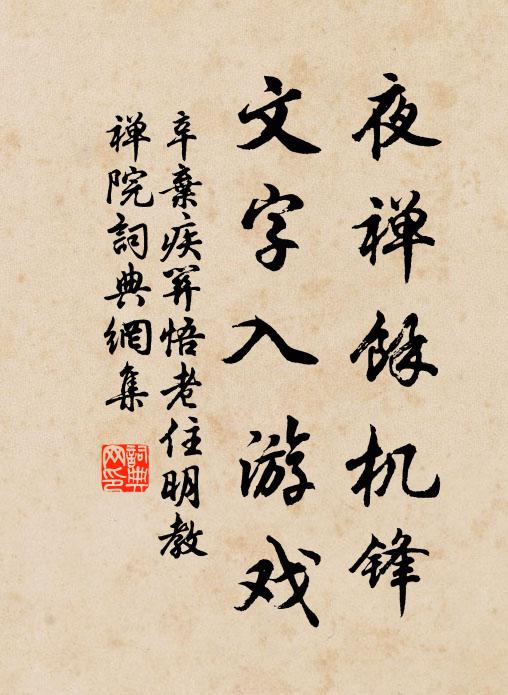 夜禅餘机锋
文字入游戏
辛棄疾箅悟老住明教
禅院詞典網集
詞典网印